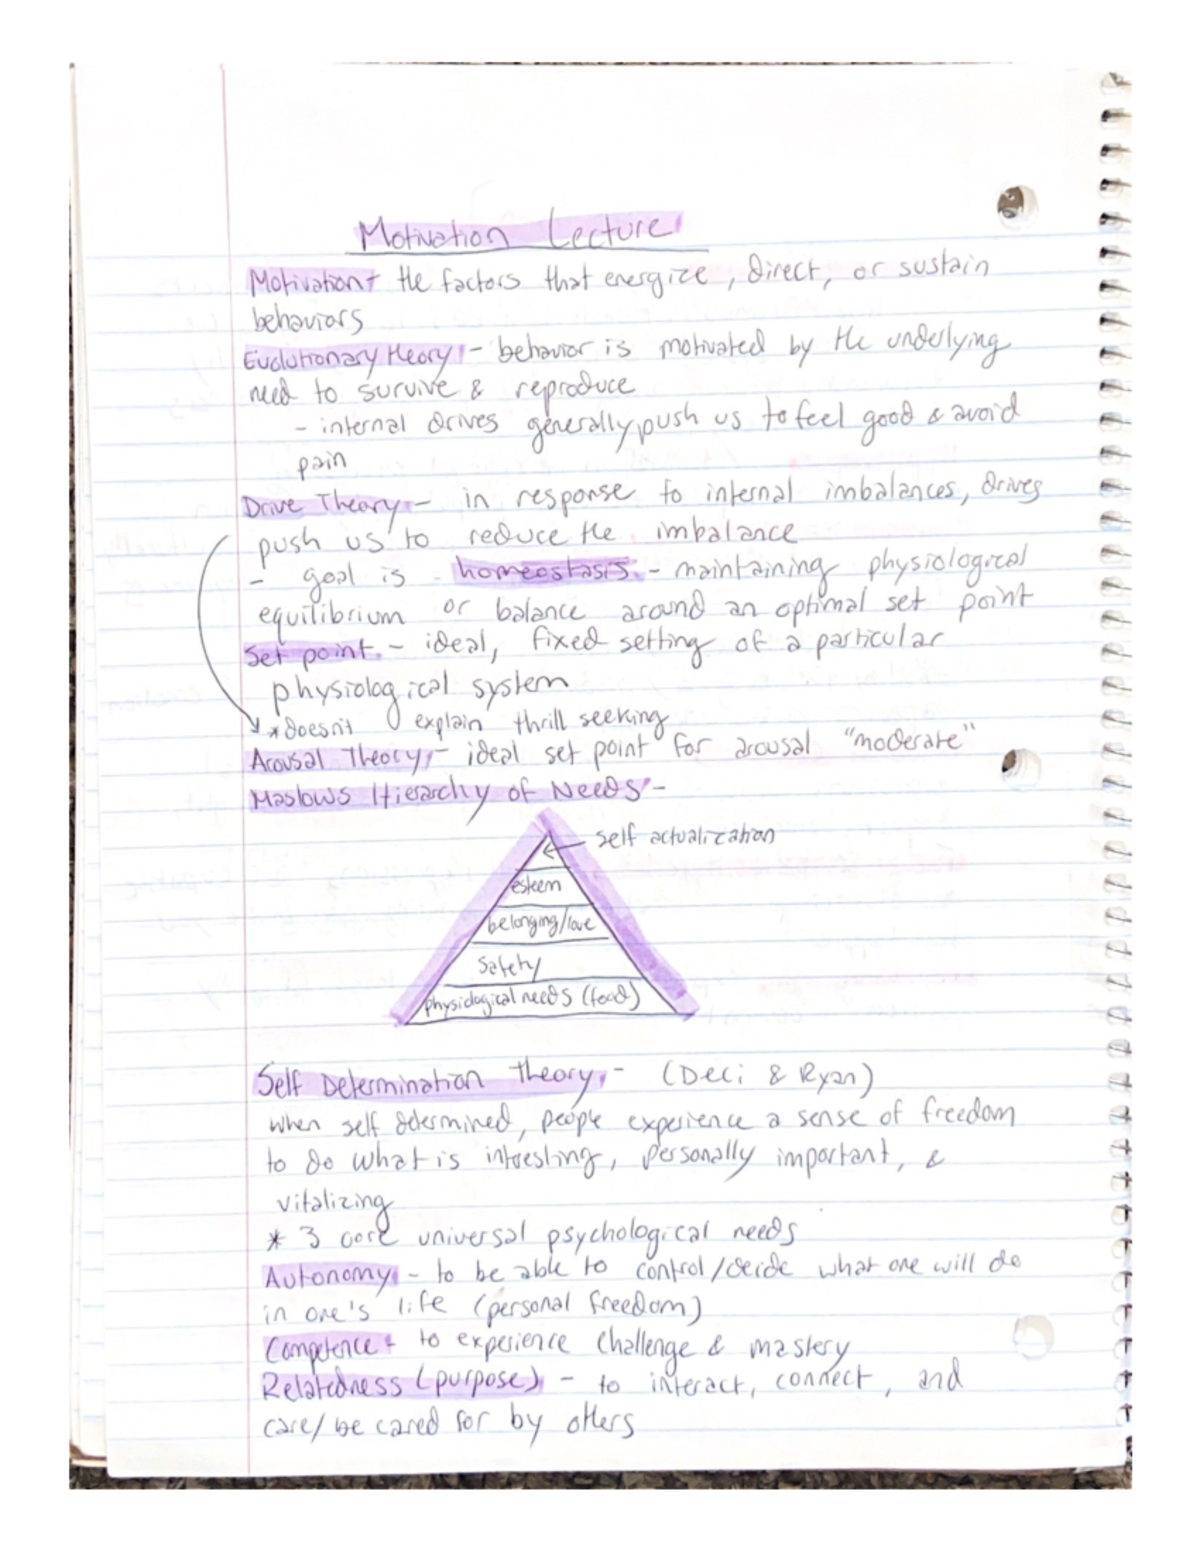 Motivation Lecture
Motivation - the factors that energize, direct, or sustain
behaviors
Evolutionary theory - behavior is motivated by the underlying
need to survive & reproduce
- internal drives generally push us to feel good & avoid
pain
Drive Theory - in response to internal imbalances, drives
push us to reduce the imbalance
- goal is homeostasis - maintaining physiological
equilibrium or balance around an optimal set point
Set point - ideal, fixed setting of a particular
physiological system
* doesn't explain thrill seeking
Arousal Theory - ideal set point for arousal "moderate"
Maslows Hierarchy of Needs -
self actualization
esteem
belonging/love
Safety
physiological needs (food)
Self Determination Theory - (Deci & Ryan)
when self determined, people experience a sense of freedom
to do what is interesting, personally important, &
vitalizing
* 3 core universal psychological needs
Autonomy - to be able to control/decide what one will do
in one's life (personal freedom)
Competence - to experience challenge & mastery
Relatedness (purpose) - to interact, connect, and
care/be cared for by others